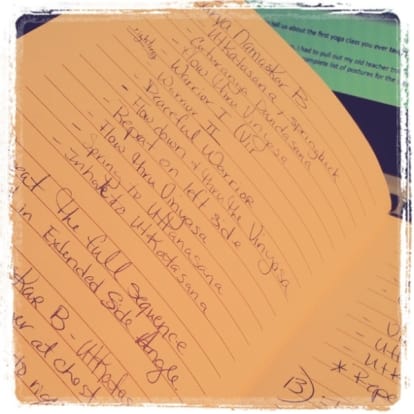 Namaskar B
Utkatasana + springback
Caturanga Dandasana
- Flow thru Vinyasa
- Warrior I
Warrior II
Peaceful Warrior
- Flow down + thru the Vinyasa
- Repeat on left side
- Flow thru Vinyasa
- Spring to Uttanasana
- Inhale to Utkatasana
the full sequence
in Extended Side Angle
B - Utkatas
at chest
B
tell us about the first yoga class you ever
I had to pull out my old teacher
complete list of postures for the